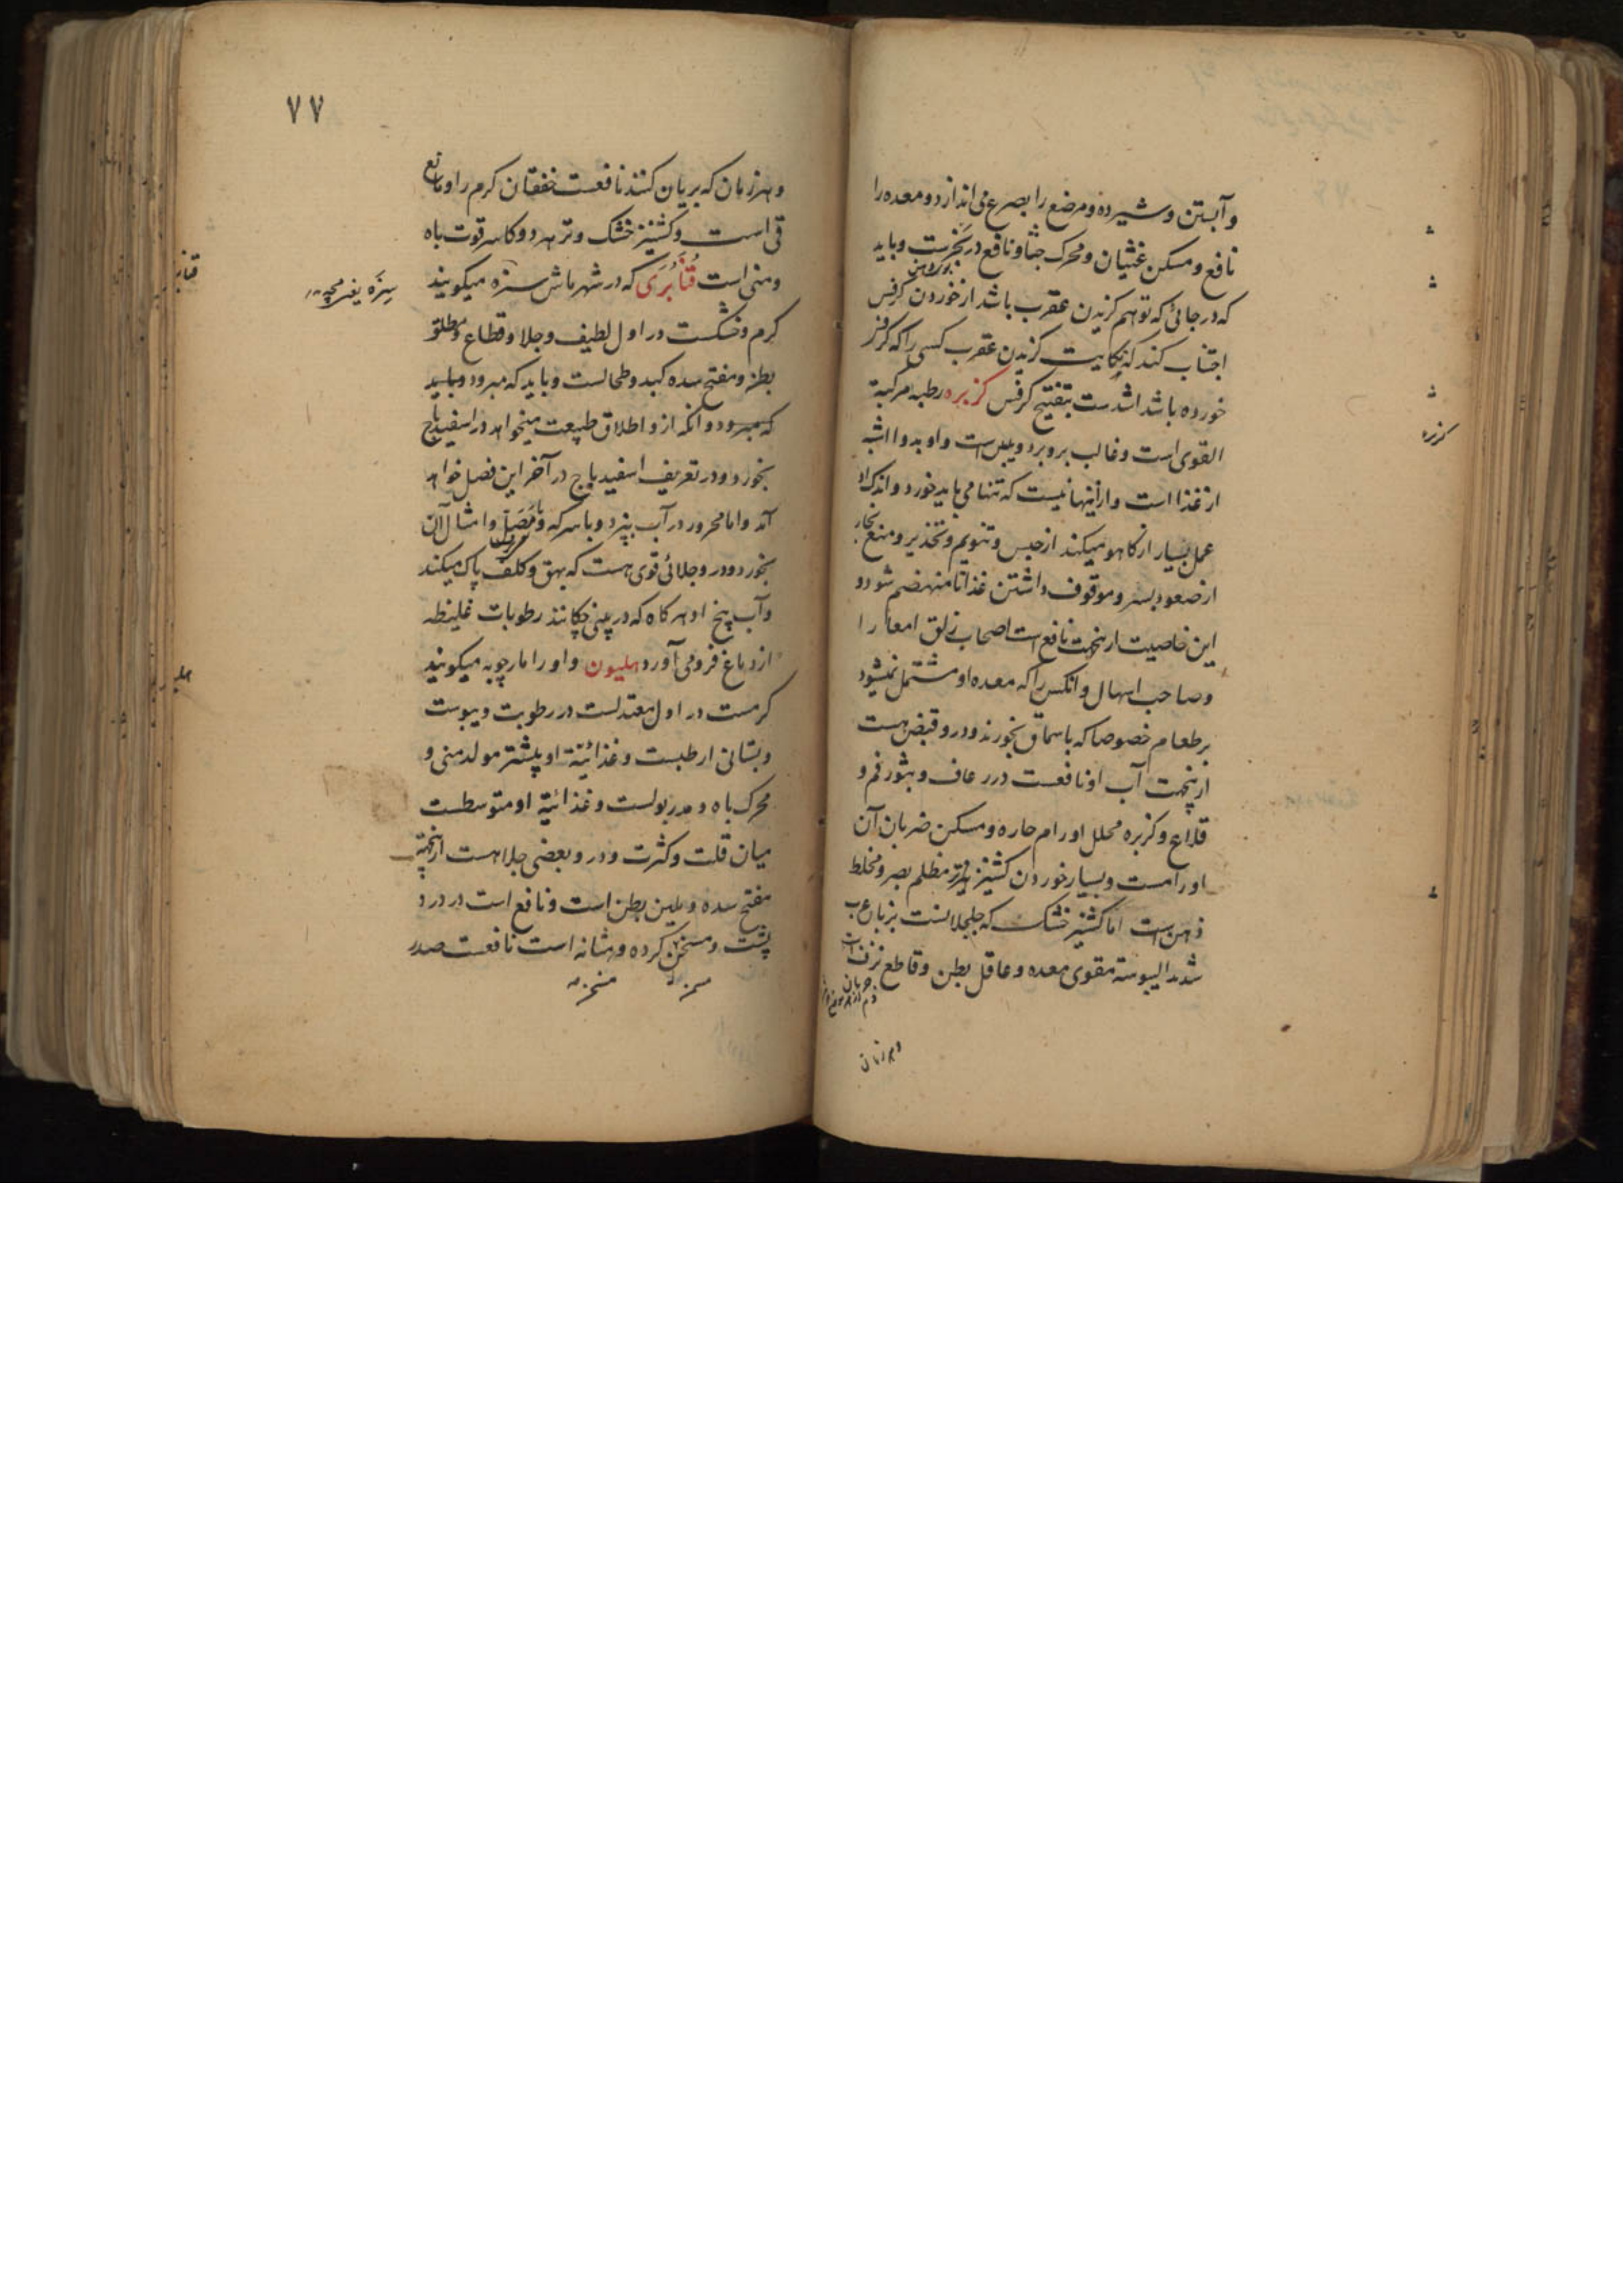 و آبستن و شیر ده و مرضع را بصرع می اندازد و معده را
نافع و مسکن غثیان و محرک جشا و نافع در بخرست و باید
که در جائی که توهم گزیدن عقرب باشد از خوردن کرفس
اجتناب کند که نکایت گزیدن عقرب کسی را که کرفس
خورده باشد اشدست بتفتیح کرفس کزبره رطبه مرکبة
القوی است و غالب برو برد و یبس است و او بدوا اشبه
از غذا است و ازینها نیست که تنها می باید خورد و اندک او
عمل بسیار از کاهو میکند از حبس و تنویم و تخذیر و منع بخار
از صعود بسر و موقوف داشتن غذا تا منهضم شود و
این خاصیت ازنجهت نافع است اصحاب زلق امعا را
و صاحب اسهال و آنکس را که معده او مشتمل نمیشود
بر طعام خصوصا که با سماق بخورند و درو قبض هست
ازینجهت آب او نافعست در رعاف و بثور فم و
قلاع و کزبره محلل اورام حاره و مسکن ضربان آن
اورامست و بسیار خوردن کشنیز تر مظلم بصر و مخلط
ذهن است اما کشنیز خشک که جلجلانست بزبان عرب
شدید الیبوسة مقوی معده و عاقل بطن و قاطع نزف
کزبره
و هر زمان
۷۷
و هر زمان که بریان کنند نافعست خفقان گرم را و مانع
قی است و کشنیز خشک و تر هر دو کاسر قوت باه
و منی است قُنابَری که در شهر ماش سبزه میکویند
گرم و خشکست در اول لطیف و جلا و قطاع و مطلق
بطن و مفتح سده کبد و طحالست و باید که مبرود و باید
که مبرود و آنکه ازو اطلاق طبیعت میخواهد در اسفیدباج
بخورد و در تعریف اسفیدباج در آخر این فصل خواهد
آمد و اما محرور در آب بپزد و با سرکه و مَصَل و امثال آن
بخورد و درو جلائی قوی هست که بهق و کلف پاک میکند
و آب بیخ او هر گاه که در بینی چکانند رطوبات غلیظه
از دماغ فرو می آورد هلیون و او را مارچوبه میکویند
گرمست در اول معتدلست در رطوبت و یبوست
و بستانی ارطبست و غذائیة او بیشتر مولد منی و
محرک باه و مدر بولست و غذائیة او متوسطست
میان قلت و کثرت و درو بعضی جلا هست ازینجهة
مفتح سده و ملین بطن است و نافع است در درد
پشت و مسخن گرده و مثانه است نافعست صدر